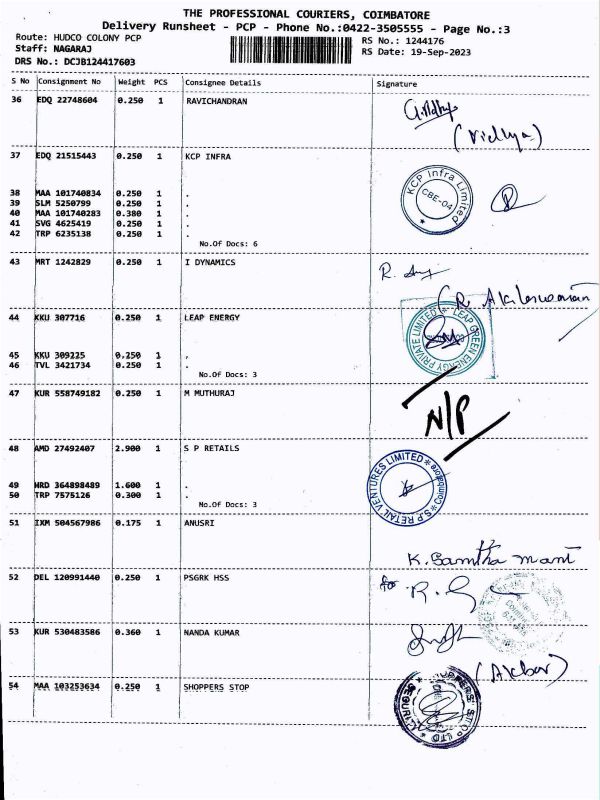 THE PROFESSIONAL COURIERS, COIMBATORE
Delivery Runsheet - PCP - Phone No.:0422-3505555 - Page No.:3
Route: HUDCO COLONY PCP RS No.: 1244176
Staff: NAGARAJ RS Date: 19-Sep-2023
DRS No.: DCJB124417603
S No Consignment No Weight PCS Consignee Details Signature
36 EDQ 22748604 0.250 1 RAVICHANDRAN
(Vidhya)
37 EDQ 21515443 0.250 1 KCP INFRA
KCP Infra Limited
CBE-04
38 MAA 101740834 0.250 1 .
39 SLM 5250799 0.250 1 .
40 MAA 101740283 0.380 1 .
41 SVG 4625419 0.250 1 .
42 TRP 6235138 0.250 1 .
No.Of Docs: 6
43 MRT 1242829 0.250 1 I DYNAMICS
44 KKU 307716 0.250 1 LEAP ENERGY
LEAP GREEN ENERGY PRIVATE LIMITED
45 KKU 309225 0.250 1 ,
46 TVL 3421734 0.250 1 .
No.Of Docs: 3
47 KUR 558749182 0.250 1 M MUTHURAJ
N/P
48 AMD 27492407 2.900 1 S P RETAILS
S.P RETAIL VENTURES LIMITED Coimbatore
49 HRD 364898489 1.600 1 .
50 TRP 7575126 0.300 1 .
No.Of Docs: 3
51 IXM 504567986 0.175 1 ANUSRI
52 DEL 120991440 0.250 1 PSGRK HSS
for
53 KUR 530483586 0.360 1 NANDA KUMAR
(Akbar)
54 MAA 103253634 0.250 1 SHOPPERS STOP
SHOPPERS STOP LTD SECURITY